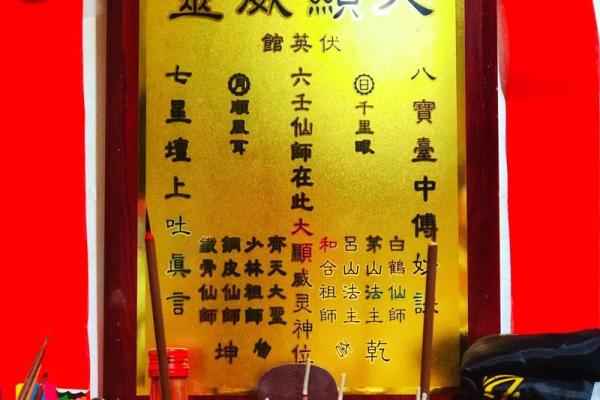 大顯威靈
伏英館
八寶臺中傳妙訣
日千里眼
六壬仙師在此大顯威灵神位
月順風耳
七星壇上吐眞言
白鶴仙師
茅山法主
呂山法主
和合祖師
齊天大聖
少林祖師
銅皮仙師
鐵骨仙師
乾
坤